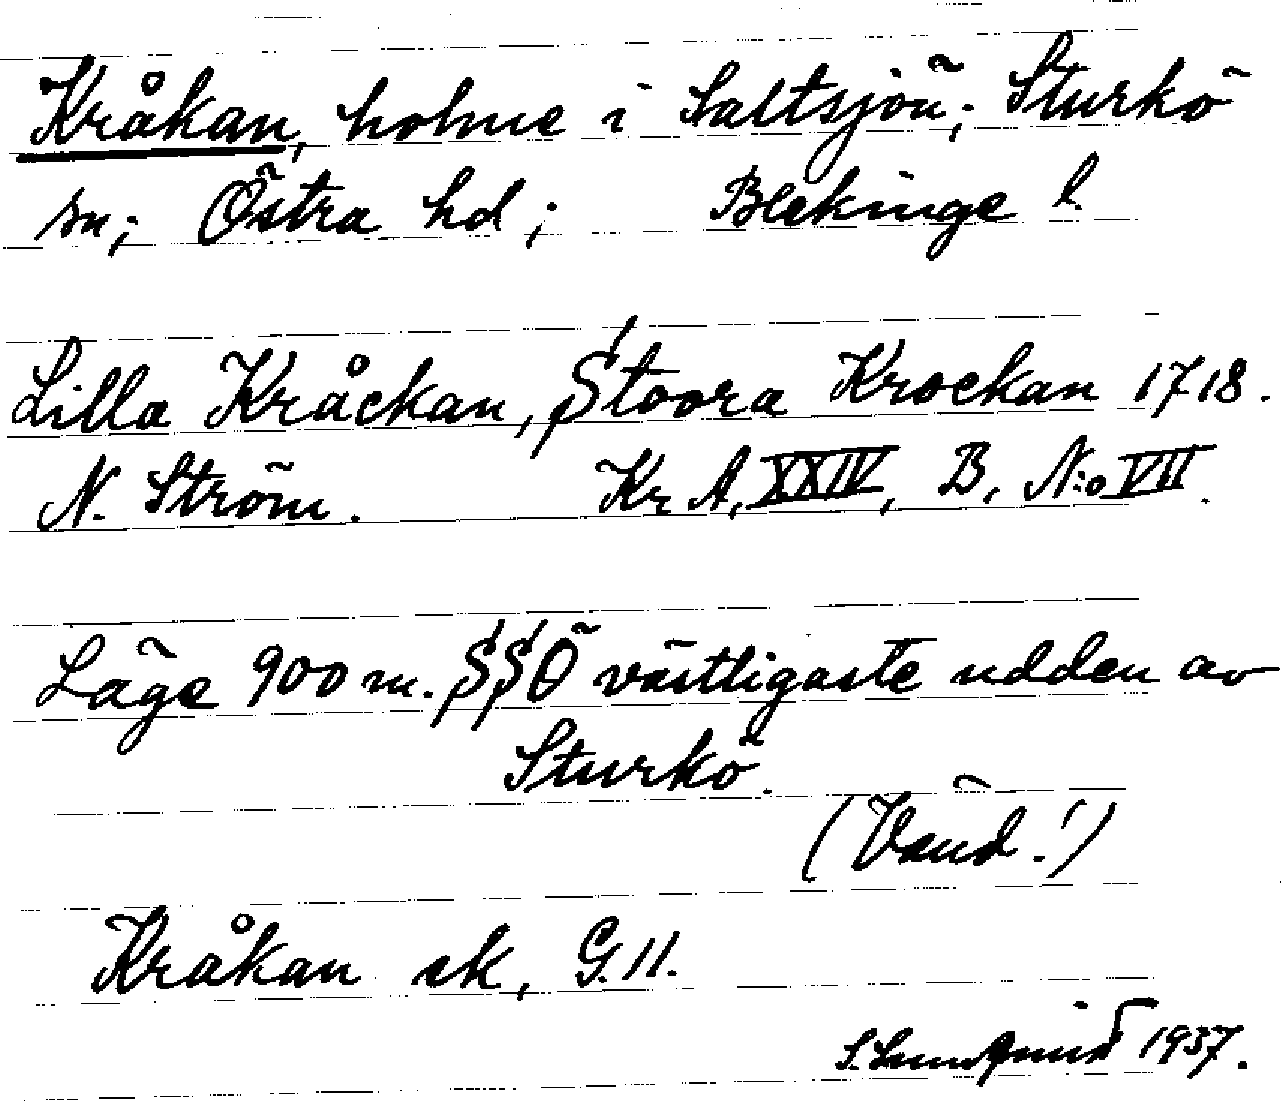 Kråkan, holme i Saltsjön; Sturkö
sn; Östra hd; Blekinge l.
Lilla Kråckan, Stoora Krockan 1718.
N. Ström. Kr A, XXIV, B, N:o VII.
Läge 900 m. SSÖ västligaste udden av
Sturkö.
(Vänd!)
Kråkan sk, G. 11.
S. Lundquist 1937.